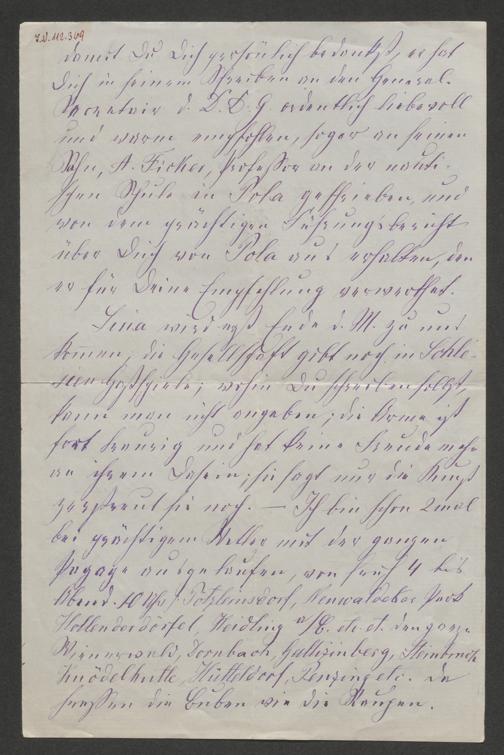 I.N. 112.369
damit Du Dich persönlich bedankst, er hat
Dich in seinem Schreiben an den General-
Secretair d. D.D.G. ordentlich liebevoll
und warm empfohlen, sogar an seinen
Sohn, A. Ficker, Professor an der nauti-
schen Schule in Pola geschrieben, und
von dem prächtigen Führungsbericht
über Dich von Pola aus erhalten, den
er für Deine Empfehlung verwerthet.
Lina wird erst Ende d. M. zu uns
kommen, die Gesellschaft gibt noch in Schle-
sien Gastspiele; wohin Du schreiben sollst,
kann man nicht angeben; die Arme ist
fort traurig und hat keine Freude mehr
an ihrem Dasein; sie sagt nur die Kunst
zerstreut sie noch. – Ich bin schon 2mal
bei prächtigem Wetter mit der ganzen
Bagage ausgelaufen, von früh 4 bis
Abend 10 Uhr, Potzleinsdorf, Neuwaldecker Park
Weidling a/B. etc. etc. den ganzen
Wienerwald, Dornbach, Gallizinberg, Steinbruch
Knödelhütte, Hütteldorf, Penzing etc. Da
fressen die Buben wie die Raupen.